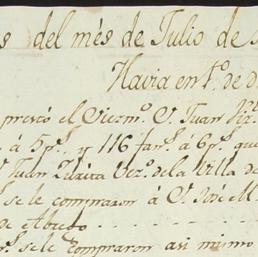 s del més de Julio de
Havia en 1.º de d
prestó el Diezm.º D.n Juan
à 5 p.s, y 116 fan.s à 6 p.s que
Juan Zurita Vez.º de la Villa de
se le compraron à D.n José M.
de Abudo
se le compraron asi mismo